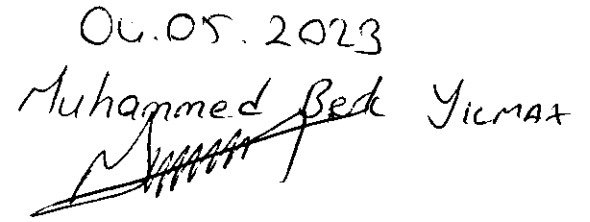 04.05.2023
Muhammed Berk Yılmaz